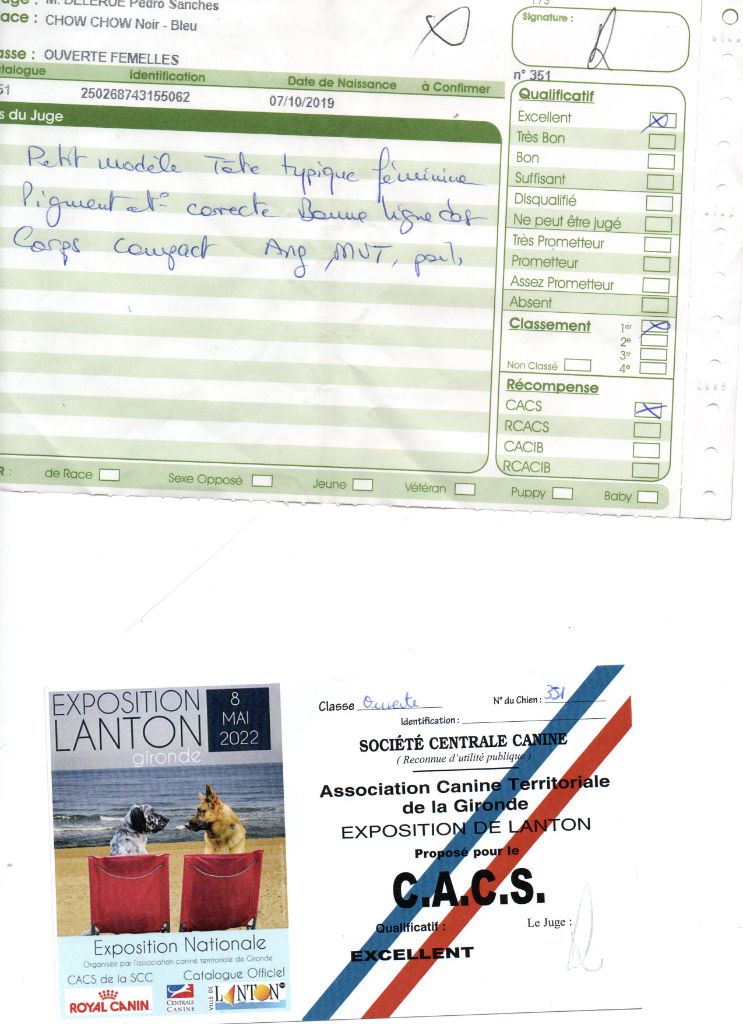 M. DELERUE Pedro Sanches
ace : CHOW CHOW Noir - Bleu
asse : OUVERTE FEMELLES
Signature :
n° 351
atalogue Identification Date de Naissance à Confirmer
51 250268743155062 07/10/2019
s du Juge
Petit modèle Tête typique féminine
Pigment et correcte Bonne ligne dos
Corps compact Ang, MVT, poil,
Qualificatif
Excellent
Très Bon
Bon
Suffisant
Disqualifié
Ne peut être jugé
Très Prometteur
Prometteur
Assez Prometteur
Absent
Classement 1er
2e
3e
Non Classé 4e
Récompense
CACS
RCACS
CACIB
RCACIB
R : de Race Sexe Opposé Jeune Vétéran Puppy Baby
EXPOSITION
LANTON
gironde
8
MAI
2022
Exposition Nationale
Organisée par l'association canine territoriale de Gironde
CACS de la SCC Catalogue Officiel
ROYAL CANIN
CENTRALE
CANINE
VILLE DE
LANTON
Classe Ouverte N° du Chien : 351
Identification :
SOCIÉTÉ CENTRALE CANINE
( Reconnue d'utilité publique )
Association Canine Territoriale
de la Gironde
EXPOSITION DE LANTON
Proposé pour le
C.A.C.S.
Qualificatif : Le Juge :
EXCELLENT